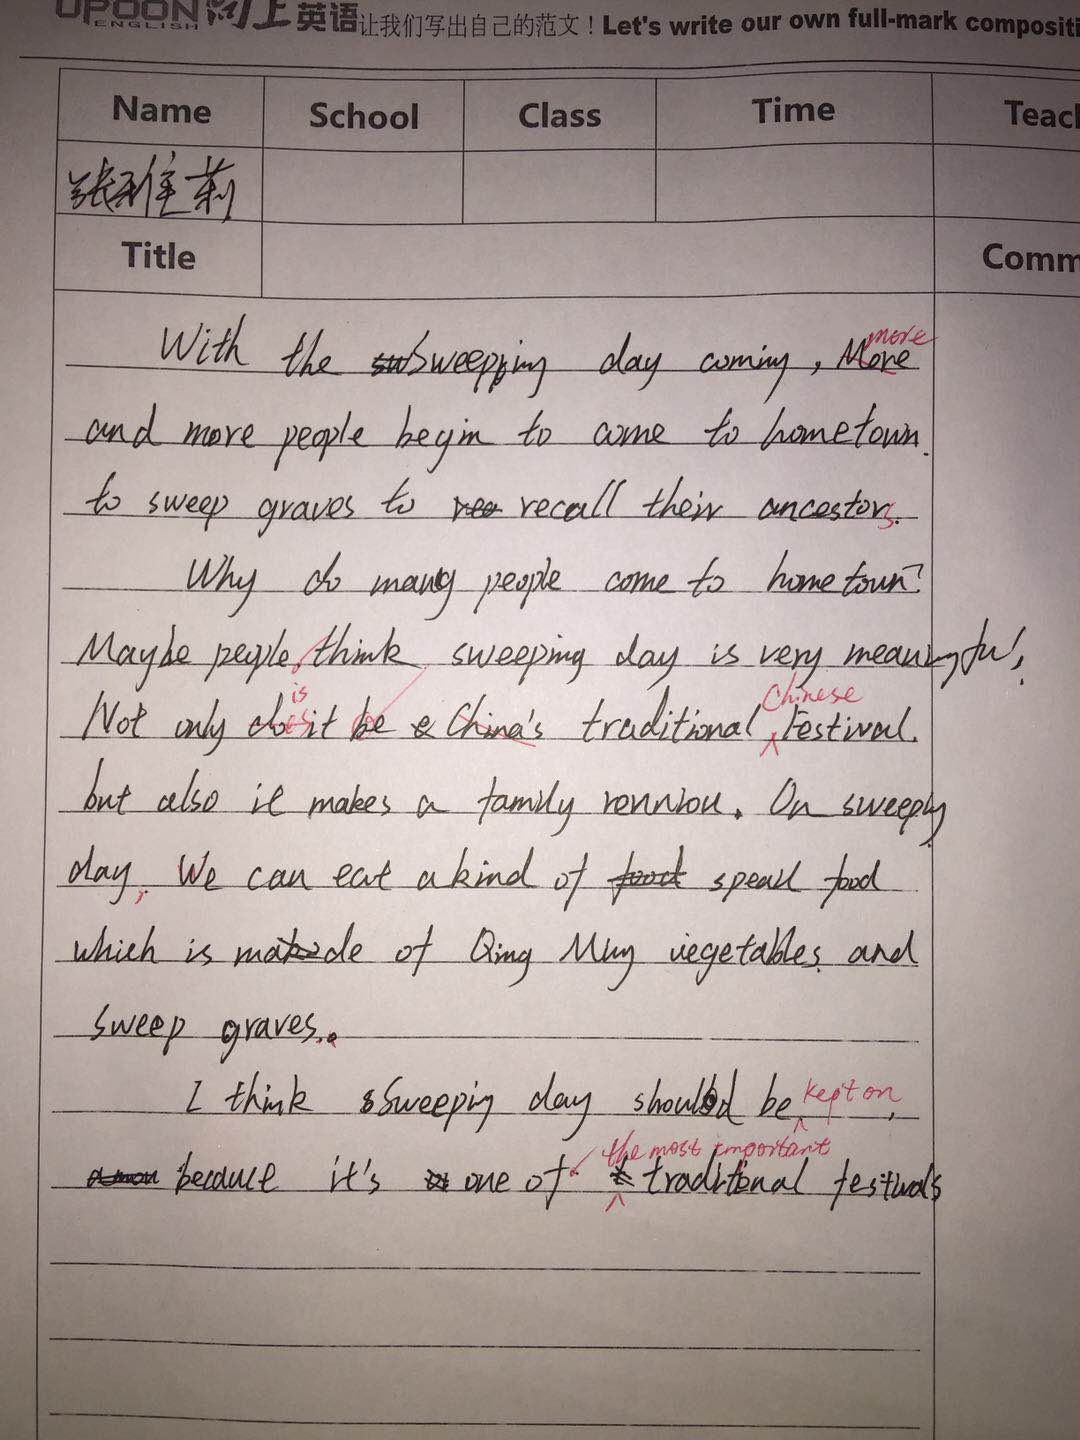 UPOON 向上英语 让我们写出自己的范文！Let's write our own full-mark compositi
ENGLISH
Name School Class Time Teac
张雅莉
Title Comm
more
With the Sweepping day coming, More
and more people begin to come to hometown.
to sweep graves to recall their ancestors.
Why do many people come to hometown?
Maybe people think sweeping day is very meaningful,
is Chinese
Not only it be a China's traditional Festival.
but also it makes a family rennion. On sweeping
day, We can eat a kind of food speall food
which is made of Qing Ming vegetables and
sweep graves.
I think Sweeping day should be kept on,
the most important
because it's one of traditional festivals